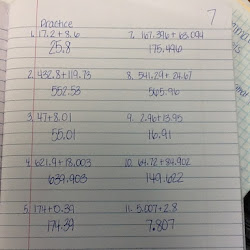 7
Practice
1. 17.2+8.6
25.8
2. 432.8+119.73
552.53
3. 47+8.01
55.01
4. 621.9+18.003
639.903
5. 174+0.39
174.39
7.
175.496
8. 541.29+24.67
565.96
9. 2.96+13.95
16.91
10. 64.72+84.902
149.622
11. 5.007+2.8
7.807